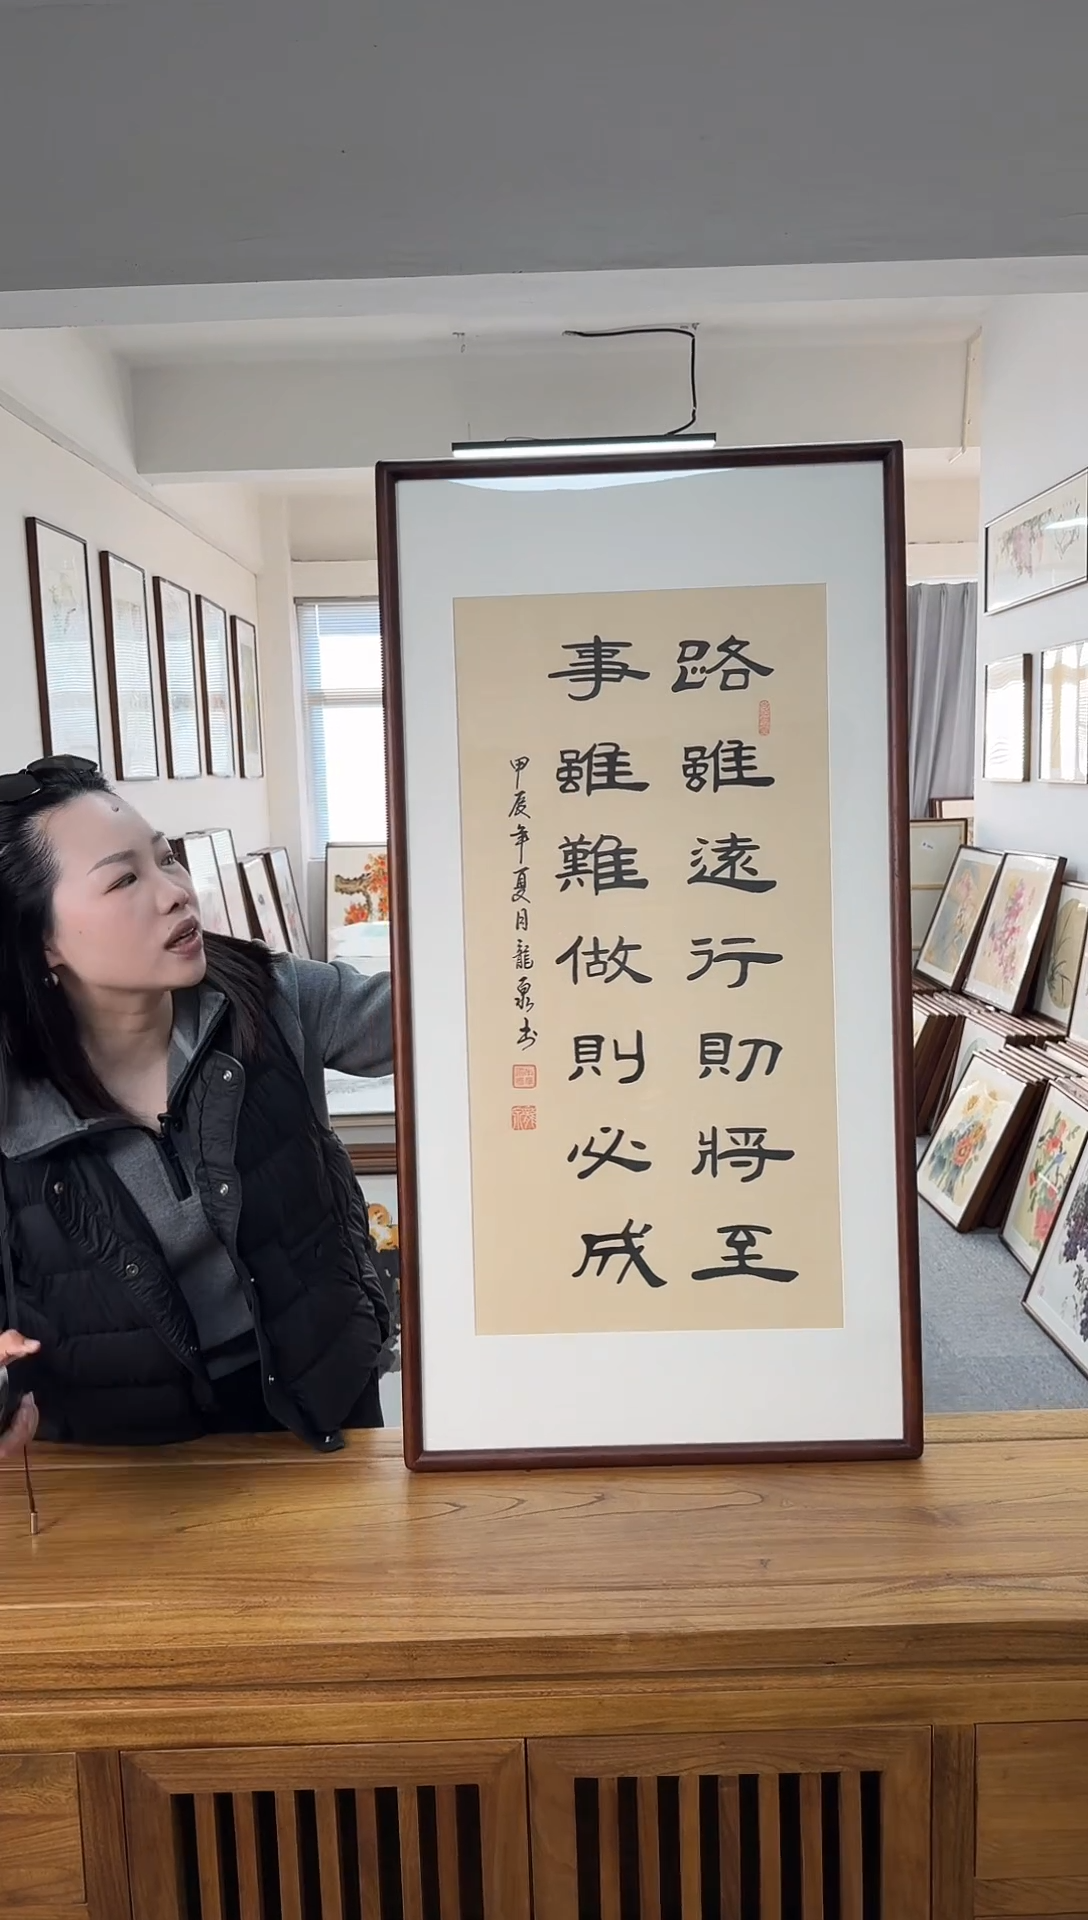 路雖遠行則將至
事雖難做則必成
甲辰年夏月龍泉书